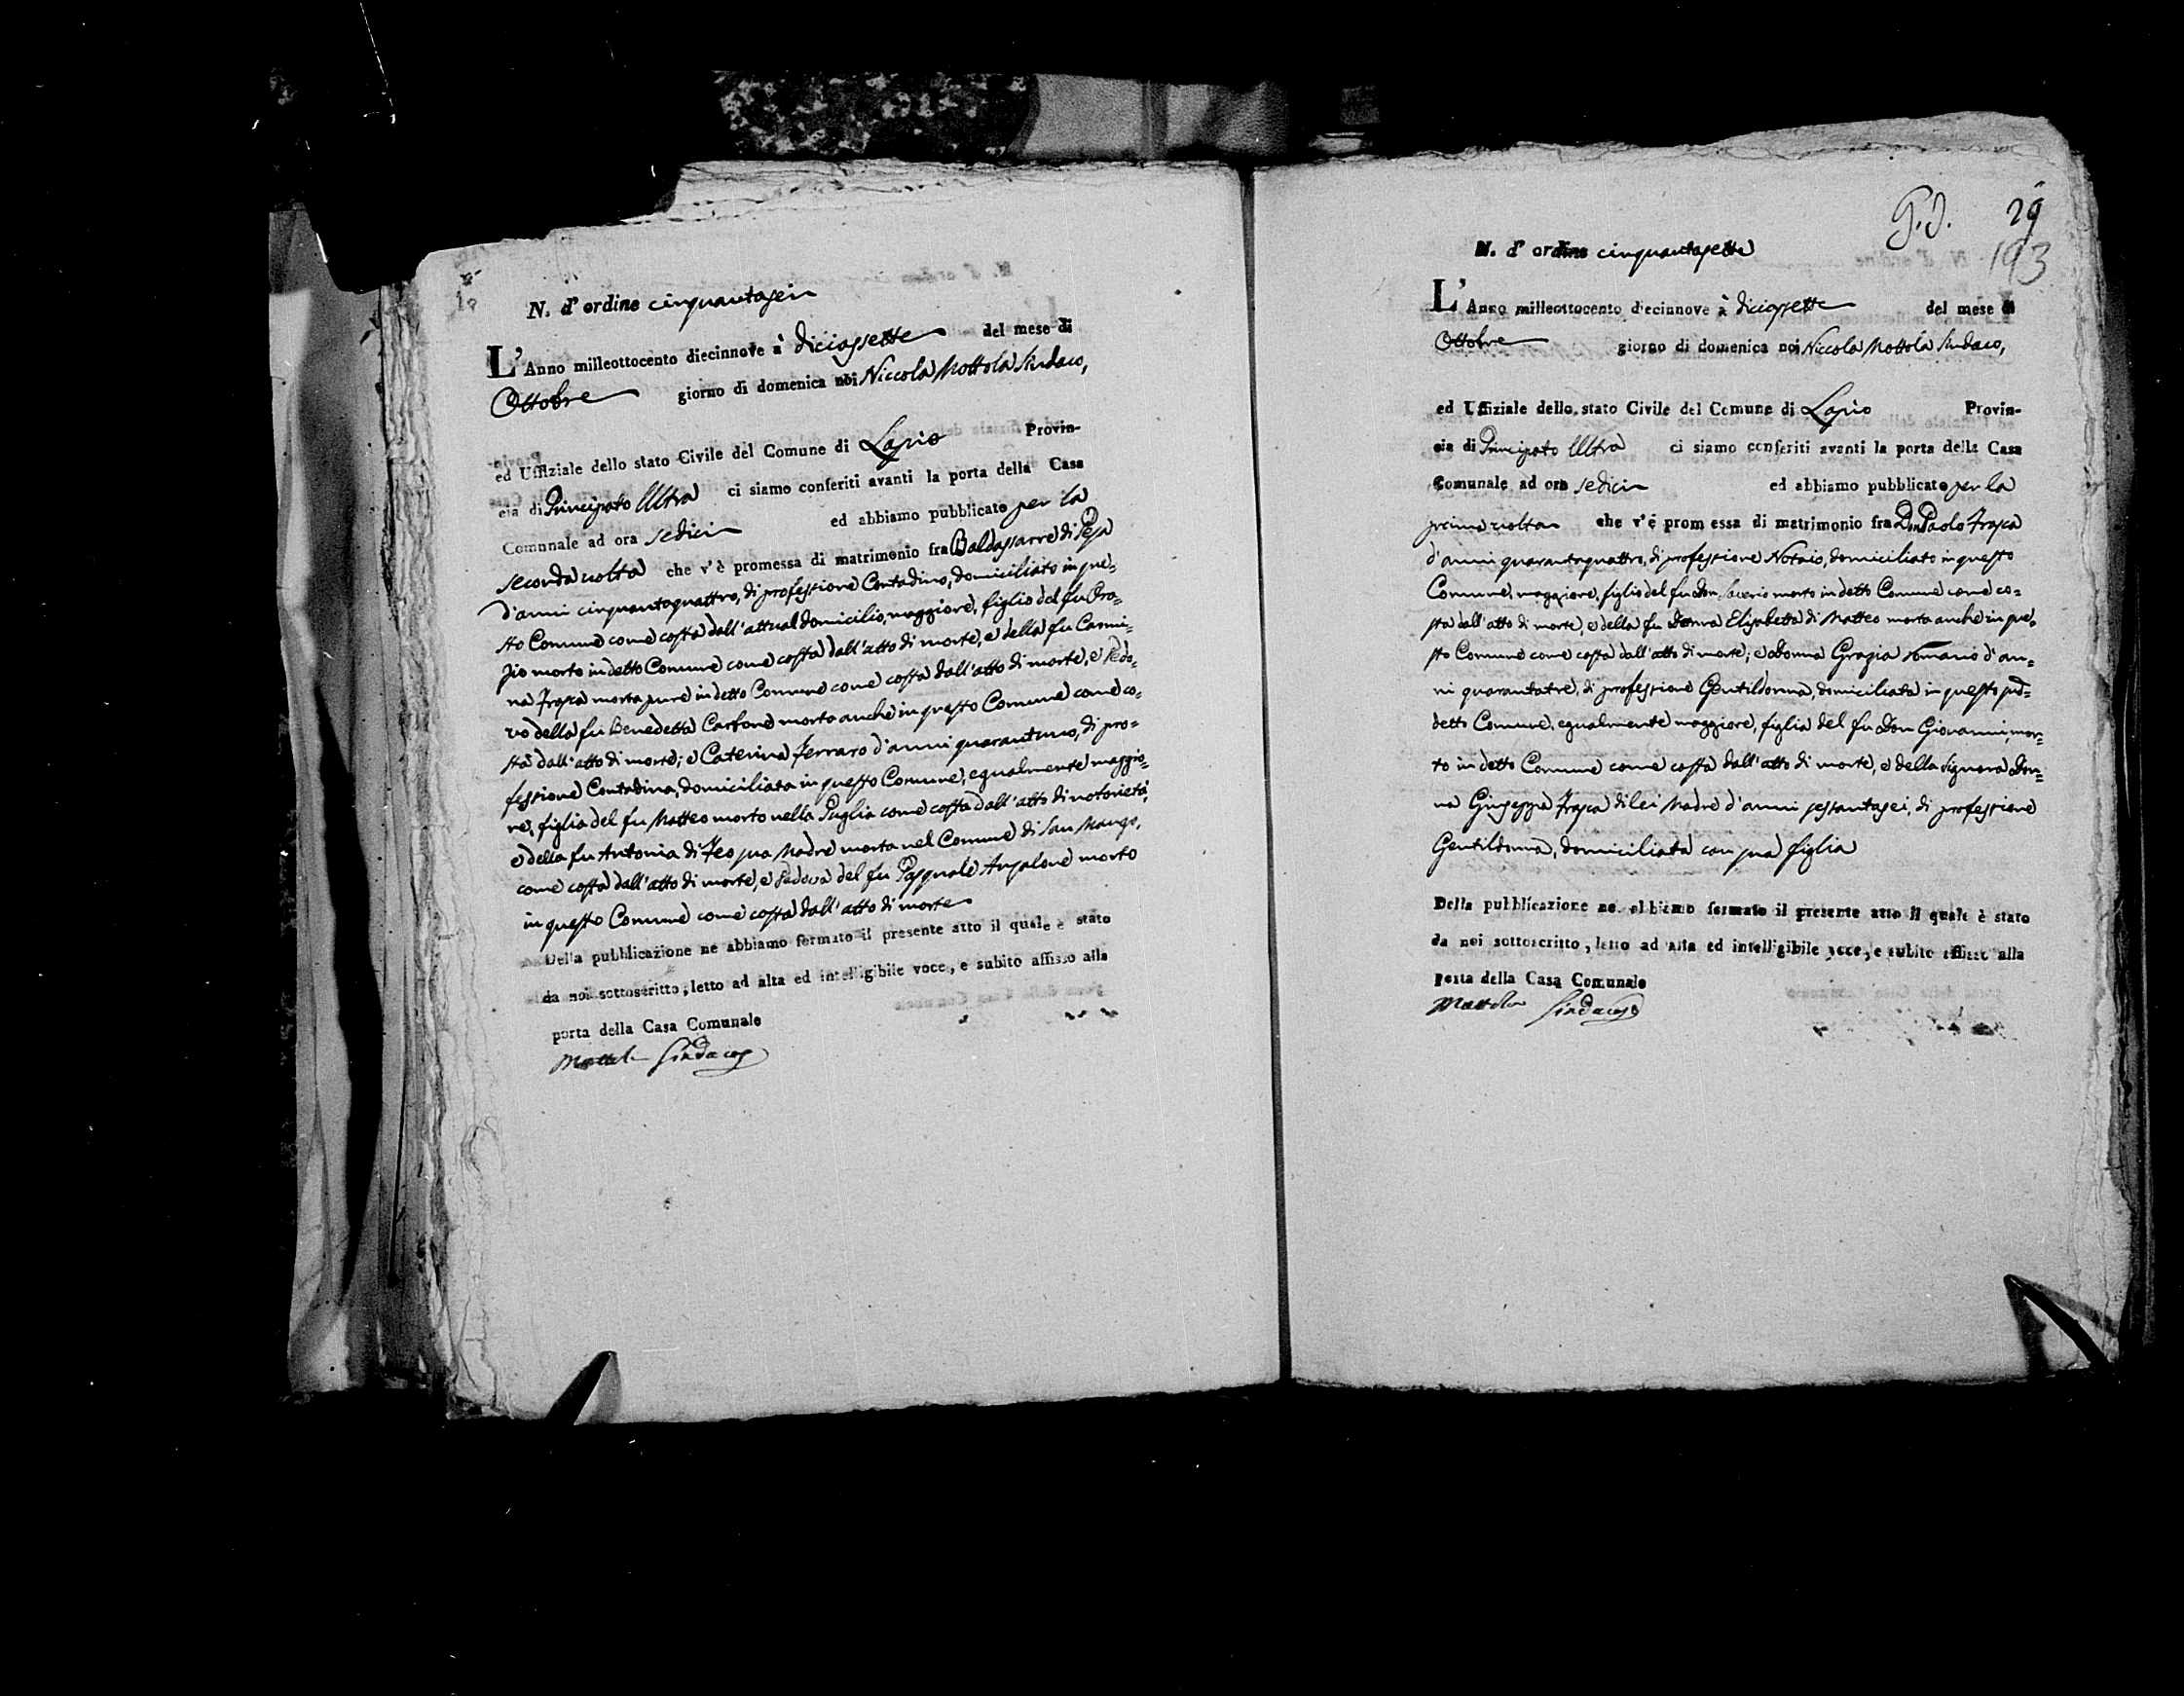 N. d' ordine cinquantasei
L' Anno milleottocento diecinnove à diciassette del mese di
Ottobre giorno di domenica noi Niccola Mottola Sindaco,
ed Uffiziale dello stato Civile del Comune di Lapio Provin-
cia di Principato Ultra ci siamo conferiti avanti la porta della Casa
Comunale ad ora sedici ed abbiamo pubblicato per la
seconda volta che v'è promessa di matrimonio fra Baldassarre di Pesa
d'anni cinquantaquattro, di professione Contadino, domiciliato in que=
sto Comune come costa dall'attual domicilio, maggiore, figlio del fu Ora=
zio morto in detto Comune come costa dall'atto di morte, e della fu Carmi=
na Frasca morta pure in detto Comune come costa dall'atto di morte, e Vedo=
vo della fu Benedetta Carbone morta anche in questo Comune come co=
sta dall'atto di morte; e Caterina Ferraro d'anni quarantuno, di pro=
fessione Contadina, domiciliata in questo Comune, egualmente maggio=
re, figlia del fu Matteo morto nella Puglia come costa dall'atto di notorietà,
e della fu Antonia di Feo sua Madre morta nel Comune di San Mango,
come costa dall'atto di morte, e Vedova del fu Pasquale Anzalone morto
in questo Comune come costa dall'atto di morte
Della pubblicazione ne abbiamo formato il presente atto il quale è stato
da noi sottoscritto, letto ad alta ed intelligibile voce, e subito affisso alla
porta della Casa Comunale
Mottola Sindaco
29
193
N. d' ordine cinquantasette
L' Anno milleottocento diecinnove à diciassette del mese di
Ottobre giorno di domenica noi Niccola Mottola Sindaco,
ed Uffiziale dello stato Civile del Comune di Lapio Provin-
cia di Principato Ultra ci siamo conferiti avanti la porta della Casa
Comunale ad ora sedici ed abbiamo pubblicato per la
prima volta che v'é promessa di matrimonio fra Don Paolo Frasca
d'anni quarantaquattro, di professione Notaio, domiciliato in questo
Comune, maggiore, figlio del fu Don Saverio morto in detto Comune come co=
sta dall'atto di morte, e della fu Donna Elisabetta di Matteo morta anche in que=
sto Comune come costa dall'atto di morte; e Donna Grazia Romano d'an=
ni quarantatre, di professione Gentildonna, domiciliata in questo pre=
detto Comune, egualmente maggiore, figlia del fu Don Giovanni, mor=
to in detto Comune come costa dall'atto di morte, e della Signora Don=
na Giuseppa Frasca di lei Madre d'anni sessantasei, di professione
Gentildonna, domiciliata con sua figlia
Della pubblicazione ne abbiamo formato il presente atto il quale è stato
da noi sottoscritto, letto ad alta ed intelligibile voce, e subito affisso alla
porta della Casa Comunale
Mottola Sindaco